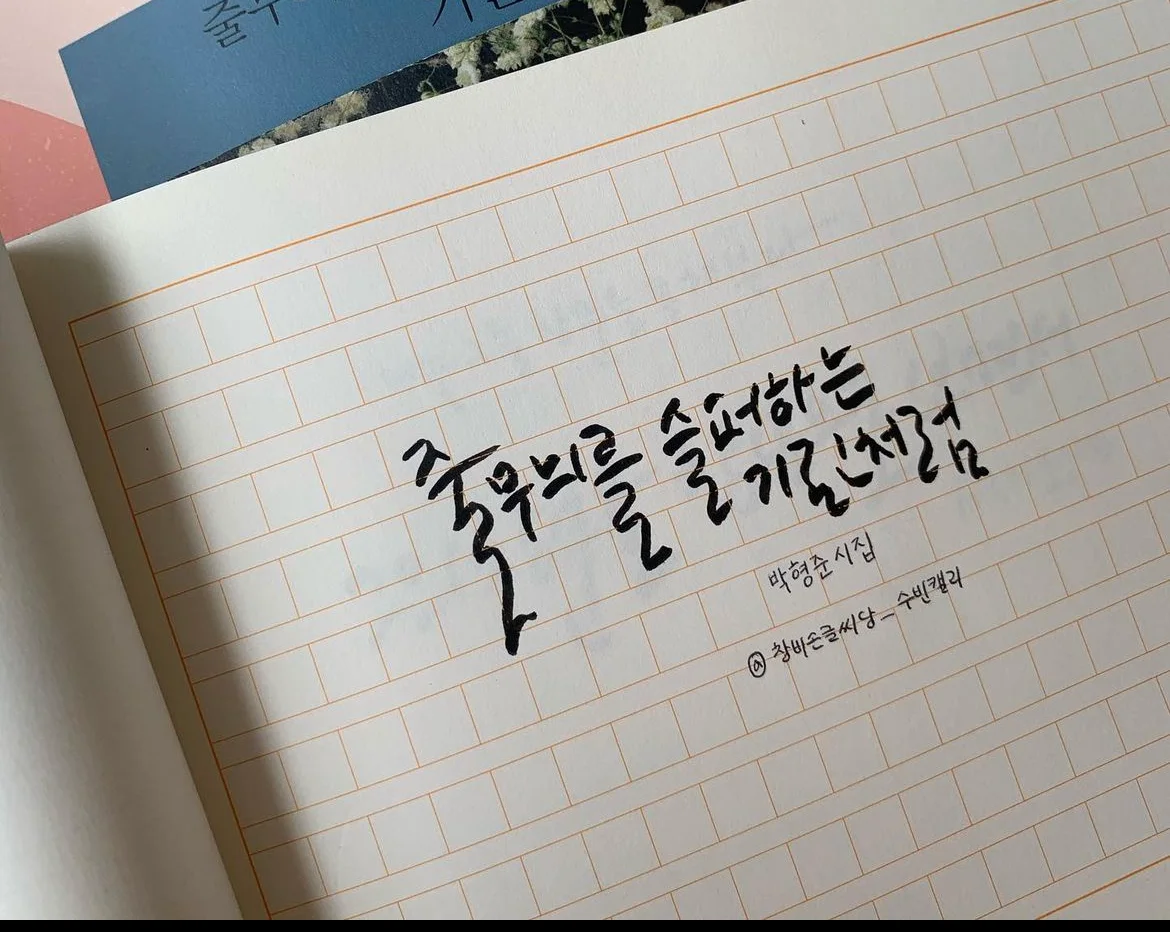 줄무
기린
줄무늬를 슬퍼하는
기린처럼
박형준 시집
@ 창비손글씨당_수빈캘리